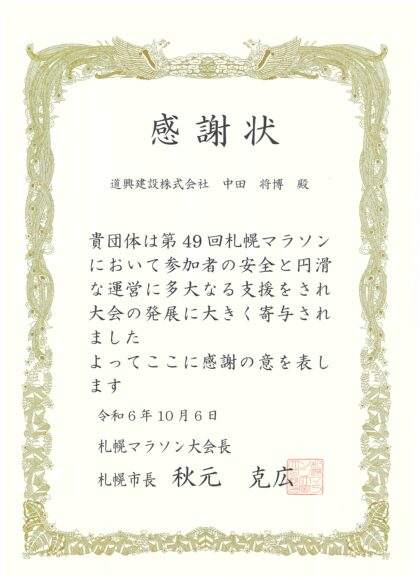 感謝状
道興建設株式会社 中田 将博 殿
貴団体は第49回札幌マラソン
において参加者の安全と円滑
な運営に多大なる支援をされ
大会の発展に大きく寄与され
ました
よってここに感謝の意を表し
ます
令和6年10月6日
札幌マラソン大会長
札幌市長 秋元 克広